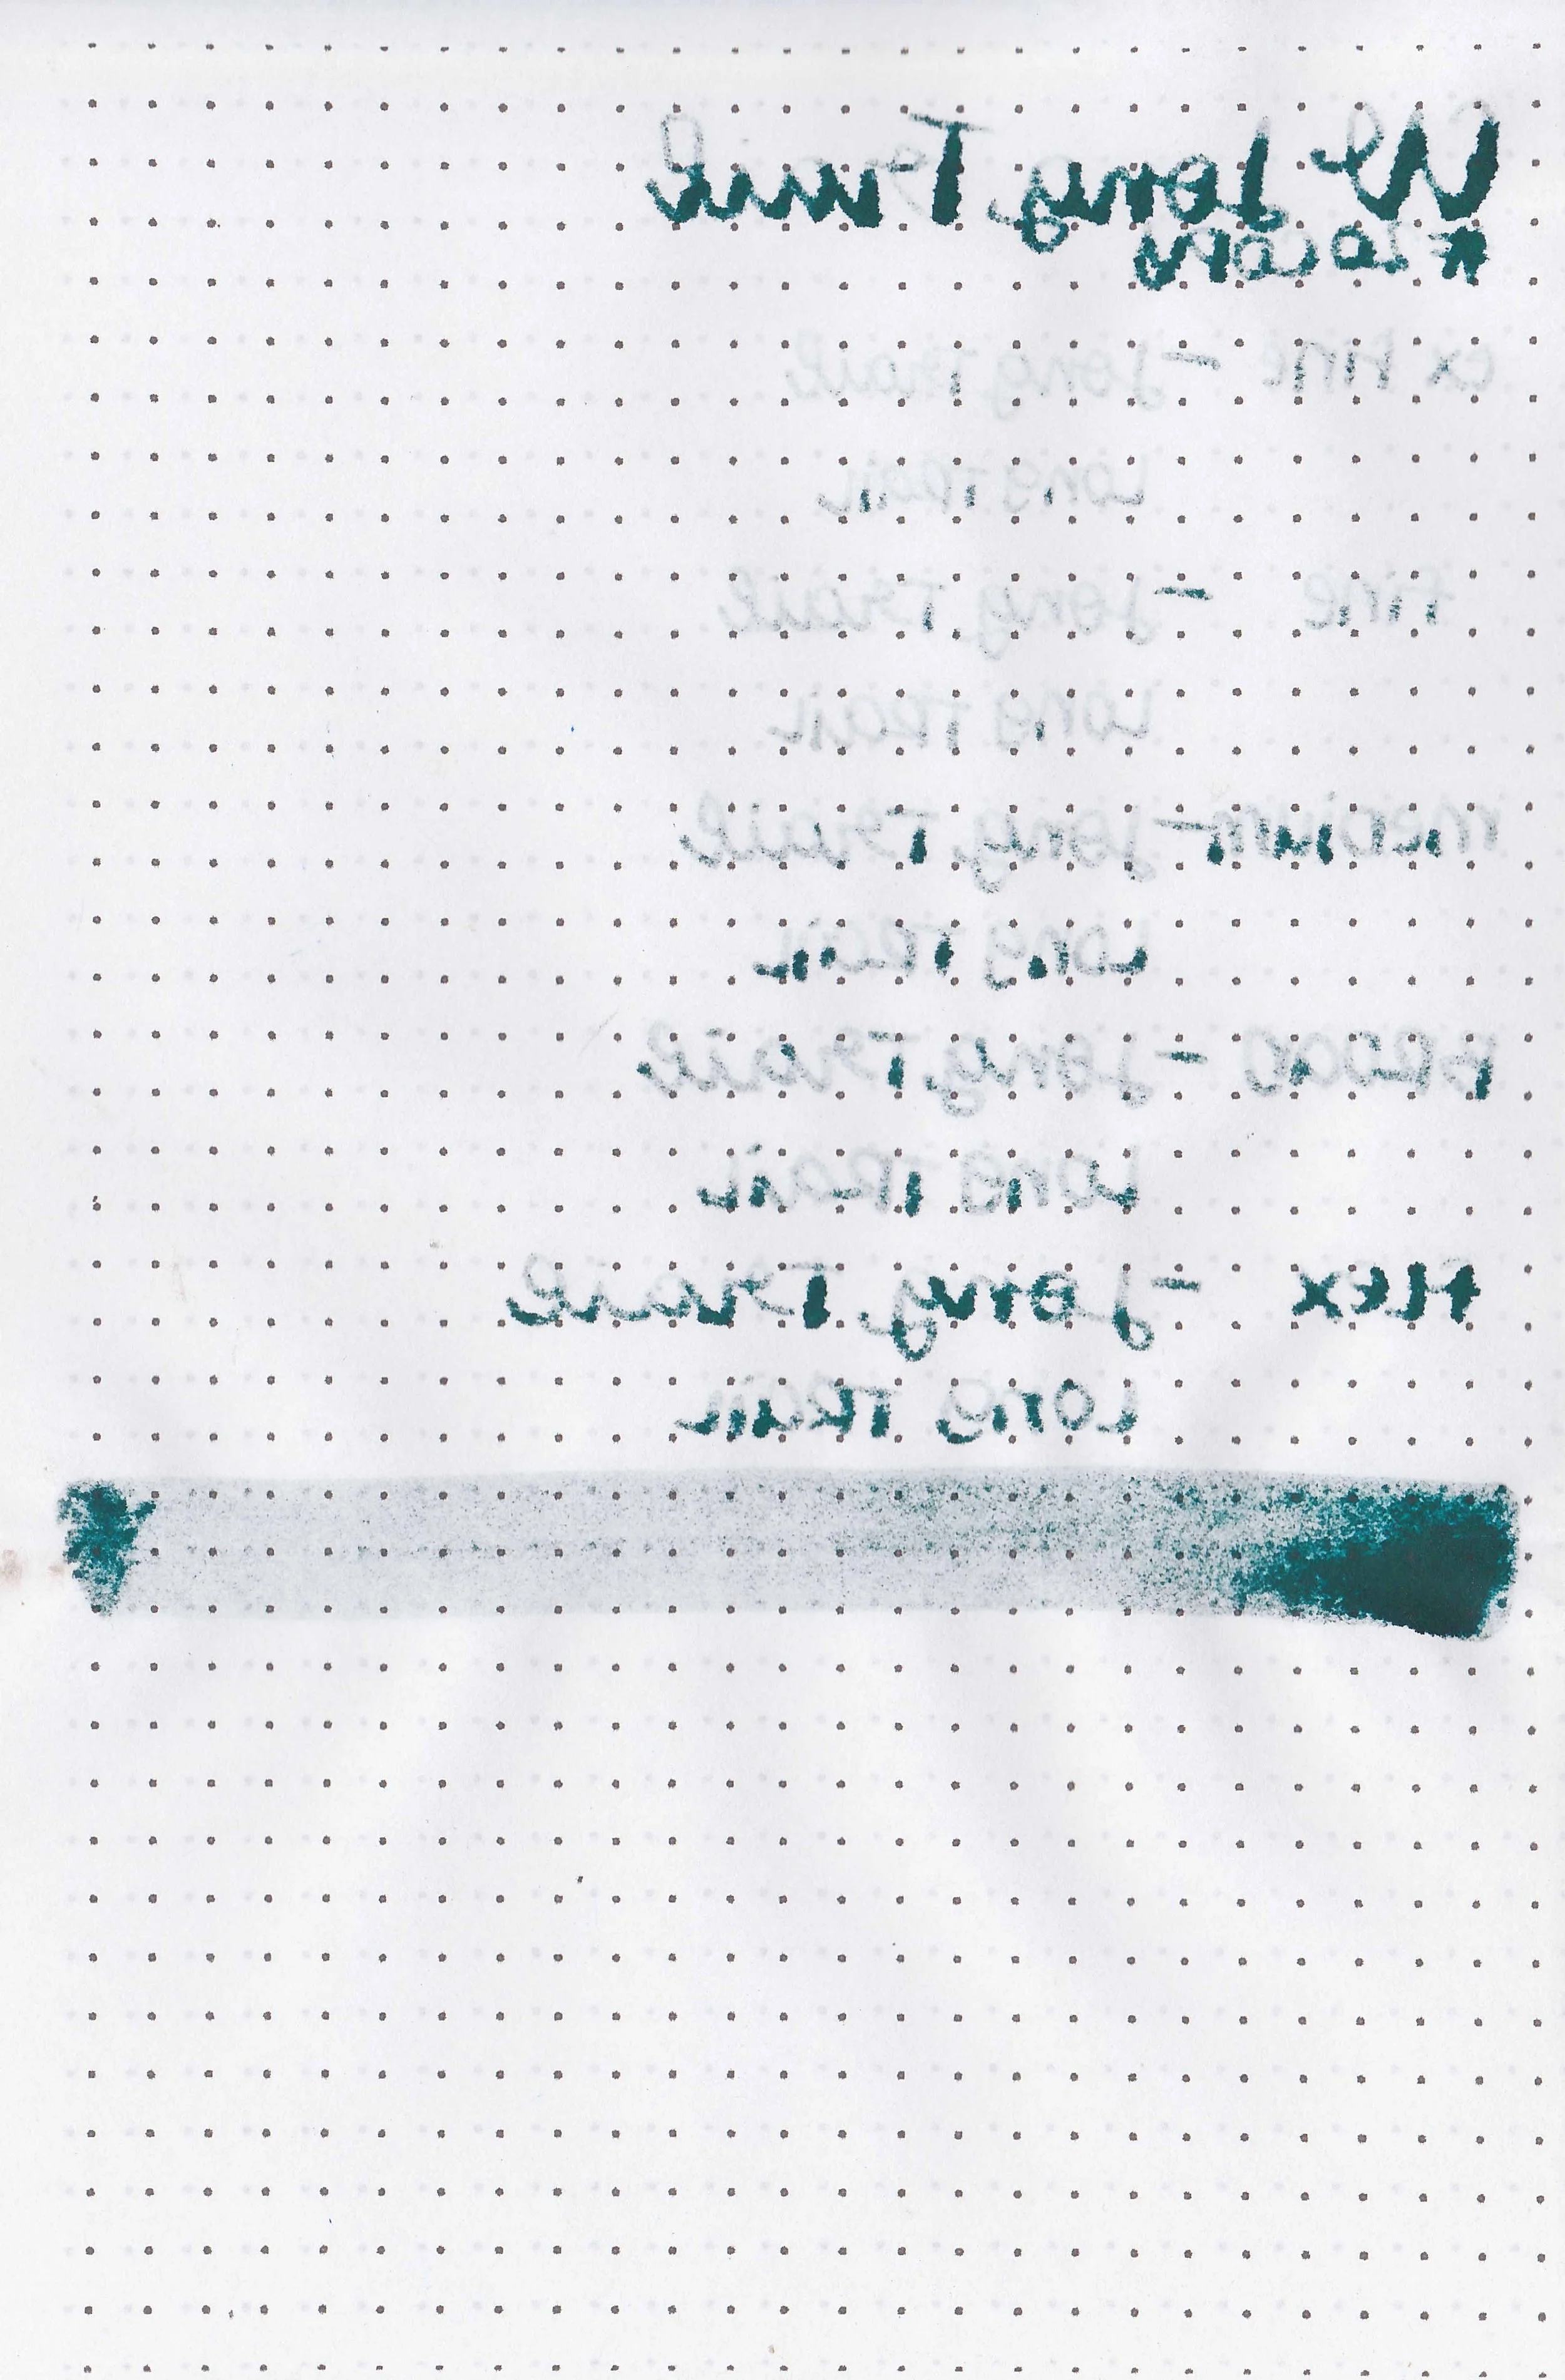 Long Trail
ex Fine - Long Trail
Long Trail
Fine - Long Trail
Long Trail
medium - Long Trail
Long Trail
Broad - Long Trail
Long Trail
Flex - Long Trail
Long Trail